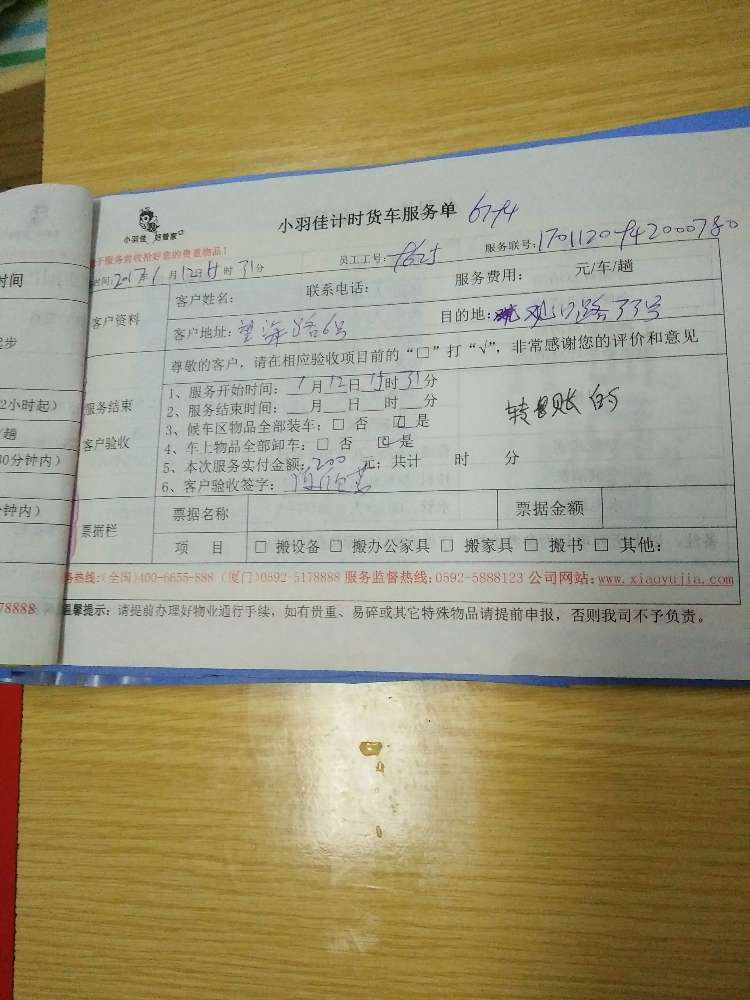 小羽佳计时货车服务单
小羽佳 好管家
服务联号:
于服务前收拾好您的贵重物品!
员工工号:
时间: 2017年1月12日15时31分
联系电话:
服务费用: 元/车/趟
时间
客户资料
客户姓名:
客户地址: 望海路6号
目的地: 观日路33号
尊敬的客户,请在相应验收项目前的“□”打“√”,非常感谢您的评价和意见
步
服务结束
客户验收
1、服务开始时间: 1月12日15时31分
2、服务结束时间:___月___日___时___分
3、候车区物品全部装车: □ 否 ☑ 是
4、车上物品全部卸车: □ 否 ☑ 是
转账的
5、本次服务实付金额: 200 元; 共计 时 分
6、客户验收签字:
2小时起)
/趟
30分钟内)
分钟内)
票据栏
票据名称
票据金额
项 目 □ 搬设备 □ 搬办公家具 □ 搬家具 □ 搬书 □ 其他:
务热线:(全国)400-6655-888 (厦门)0592-5178888 服务监督热线:0592-5888123 公司网站:www.xiaoyujia.com
78888
温馨提示: 请提前办理好物业通行手续,如有贵重、易碎或其它特殊物品请提前申报,否则我司不予负责。